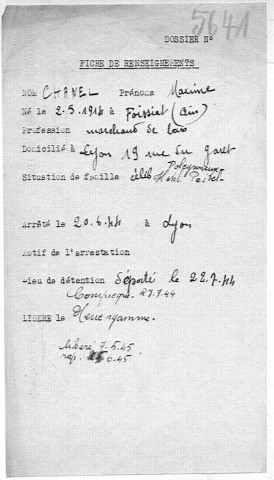 5641
DOSSIER N°
FICHE DE RENSEIGNEMENTS
NOM CHANEL Prénoms Maxime
Né le 2-5-1914 à Foissiat (Ain)
Profession marchand de bois
Domicilié à Lyon 19 rue du garet
Situation de famille célib
Arrêté le 20.6.44 à Lyon
Motif de l'arrestation
Lieu de détention Déporté le 22.7.44
Compiegne 27.7.44
LIBERE le Neuengamme.
libéré 7.5.45
rap. 6.45